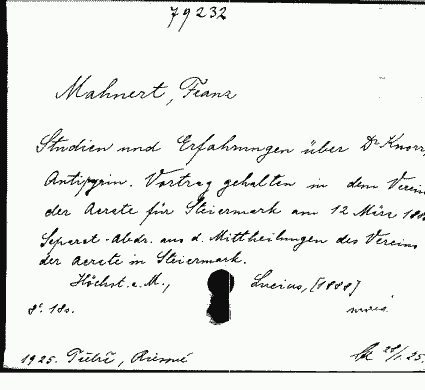 79232
Mahnert, Franz
Studien und Erfahrungen über Dr Knorr,
Antipyrin. Vortrag gehalten in dem Verein
der Aerzte für Steiermark am 12 März 188
Separat-Abdr. aus d. Mittheilungen des Vereins
der Aerzte in Steiermark.
Höchst a. M., Lucius, [1888]
8°. 18s.
1925. 28/1.25.